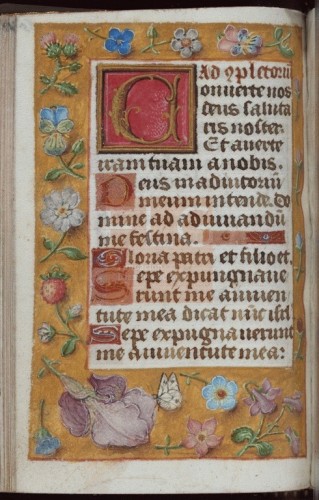 Ad cpletoriū
Conuerte nos
deus saluta
ris noster.
Et auerte
iram tuam a nobis.
Deus in adiutoriū
meum intende. Do
mine ad adiuuandū
me festina.
Gloria patri et filio et.
Sepe expungnaue
runt me a iuuen
tute mea dicat nūc isrl
Sepe expugnauerunt
me a iuuentute mea: